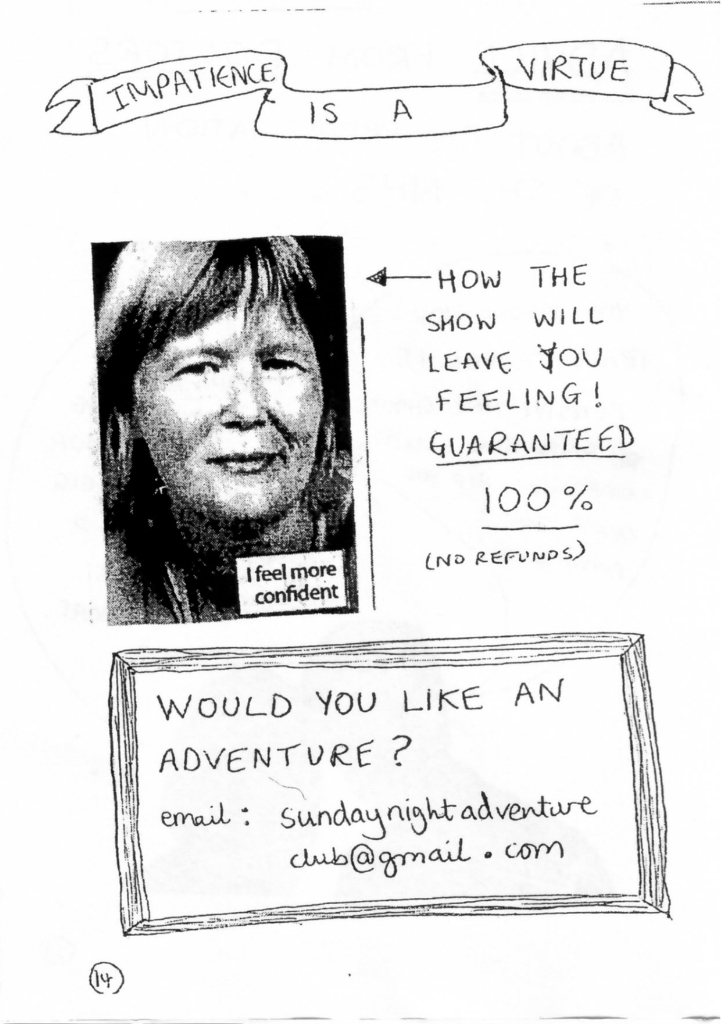 IMPATIENCE
IS A
VIRTUE
HOW THE
SHOW WILL
LEAVE YOU
FEELING!
GUARANTEED
100%
(NO REFUNDS)
I feel more
confident
WOULD YOU LIKE AN
ADVENTURE?
email: sundaynightadventure
club@gmail.com
14